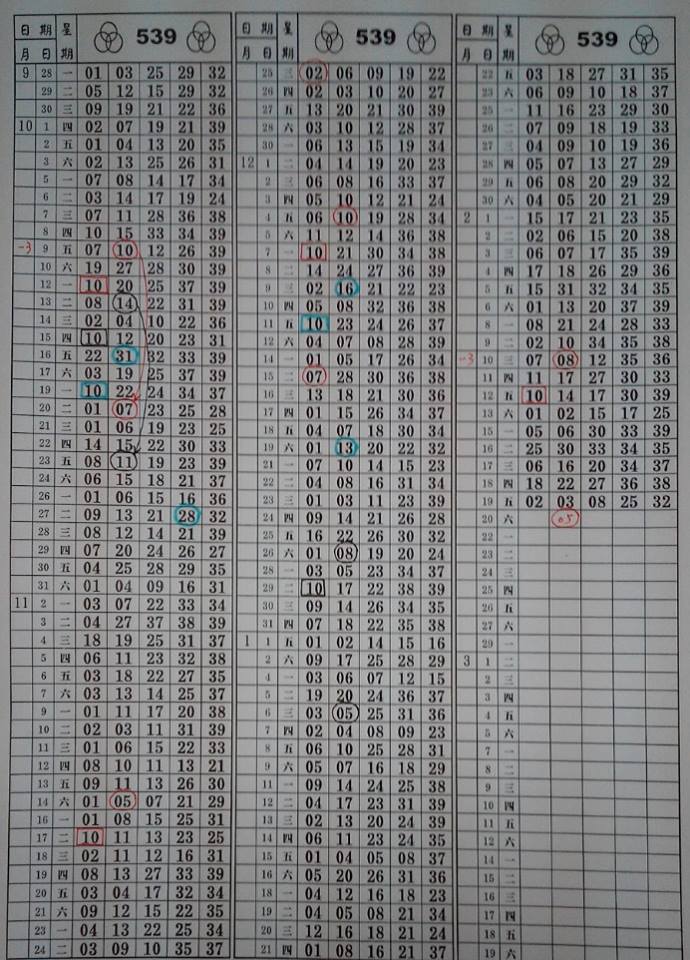 日 期 星 539
月 日 期
9 28 一 01 03 25 29 32
29 二 05 12 15 29 32
30 三 09 19 21 22 36
10 1 四 02 07 19 21 39
2 五 01 04 13 20 35
3 六 02 13 25 26 31
5 一 07 08 14 17 34
6 二 03 14 17 19 24
7 三 07 11 28 36 38
8 四 10 15 33 34 39
-3 9 五 07 10 12 26 39
10 六 19 27 28 30 39
12 一 10 20 25 37 39
13 二 08 14 22 31 39
14 三 02 04 10 22 36
15 四 10 12 20 23 31
16 五 22 31 32 33 39
17 六 03 19 25 37 39
19 一 10 22 24 34 37
20 二 01 07 23 25 28
21 三 01 06 19 23 25
22 四 14 15 22 30 33
23 五 08 11 19 23 39
24 六 06 15 18 21 37
26 一 01 06 15 16 36
27 二 09 13 21 28 32
28 三 08 12 14 21 39
29 四 07 20 24 26 27
30 五 04 25 28 29 35
31 六 01 04 09 16 31
11 2 一 03 07 22 33 34
3 二 04 27 37 38 39
4 三 18 19 25 31 37
5 四 06 11 23 32 38
6 五 03 18 22 27 35
7 六 03 13 14 25 37
9 一 01 11 17 20 38
10 二 02 03 11 31 39
11 三 01 06 15 22 33
12 四 08 10 11 13 21
13 五 09 11 13 26 30
14 六 01 05 07 21 29
16 一 01 08 15 25 31
17 二 10 11 13 23 25
18 三 02 11 12 16 31
19 四 08 13 27 33 39
20 五 03 04 17 32 34
21 六 09 12 15 22 35
23 一 04 13 22 25 34
24 二 03 09 10 35 37
日 期 星 539
月 日 期
25 三 02 06 09 19 22
26 四 02 03 10 20 27
27 五 13 20 21 30 39
28 六 03 10 12 28 37
30 一 06 13 15 19 34
12 1 二 04 14 19 20 23
2 三 06 08 16 33 37
3 四 05 10 12 21 24
4 五 06 10 19 28 34
5 六 11 12 14 36 38
7 一 10 21 30 34 38
8 二 14 24 27 36 39
9 三 02 16 21 22 23
10 四 05 08 32 36 38
11 五 10 23 24 26 37
12 六 04 07 08 28 39
14 一 01 05 17 26 34
15 二 07 28 30 36 38
16 三 13 18 21 30 36
17 四 01 15 26 34 37
18 五 04 07 18 30 34
19 六 01 13 20 22 32
21 一 07 10 14 15 23
22 二 04 08 16 31 34
23 三 01 03 11 23 39
24 四 09 14 21 26 28
25 五 16 22 26 30 32
26 六 01 08 19 20 24
28 一 03 05 23 34 37
29 二 10 17 22 38 39
30 三 09 14 26 34 35
31 四 07 18 22 35 38
1 1 五 01 02 14 15 16
2 六 09 17 25 28 29
4 一 03 06 07 12 15
5 二 19 20 24 36 37
6 三 03 05 25 31 36
7 四 02 04 08 09 23
8 五 06 10 25 28 31
9 六 05 07 16 18 29
11 一 09 14 24 25 38
12 二 04 17 23 31 39
13 三 02 13 20 24 39
14 四 06 11 23 24 35
15 五 01 04 05 08 37
16 六 05 20 26 31 36
18 一 04 12 16 18 23
19 二 04 05 08 21 34
20 三 12 16 18 21 24
21 四 01 08 16 21 37
日 期 星 539
月 日 期
22 五 03 18 27 31 35
23 六 06 09 10 18 37
25 一 11 16 23 29 30
26 二 07 09 18 19 33
27 三 04 09 10 19 36
28 四 05 07 13 27 29
29 五 06 08 20 29 32
30 六 04 05 20 21 29
2 1 一 15 17 21 23 35
2 二 02 06 15 20 38
3 三 06 07 17 35 39
4 四 17 18 26 29 36
5 五 15 31 32 34 35
6 六 01 13 20 37 39
8 一 08 21 24 28 33
9 二 02 10 34 35 38
-3 10 三 07 08 12 35 36
11 四 11 17 27 30 33
12 五 10 14 17 30 39
13 六 01 02 15 17 25
15 一 05 06 30 33 39
16 二 25 30 33 34 35
17 三 06 16 20 34 37
18 四 18 22 27 36 38
19 五 02 03 08 25 32
20 六 05
22 一
23 二
24 三
25 四
26 五
27 六
29 一
3 1 二
2 三
3 四
4 五
5 六
7 一
8 二
9 三
10 四
11 五
12 六
14 一
15 二
16 三
17 四
18 五
19 六